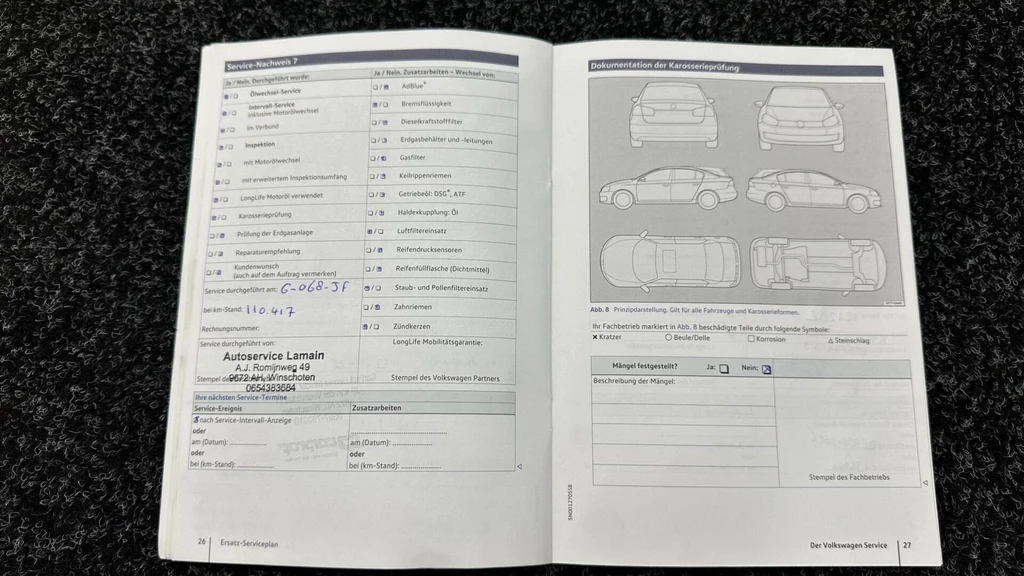 Service-Nachweis 7
Ja / Nein. Durchgeführt wurde:
Ölwechsel-Service
Intervall-Service
inklusive Motorölwechsel
im Verbund
Inspektion
mit Motorölwechsel
mit erweitertem Inspektionsumfang
LongLife Motoröl verwendet
Karosserieprüfung
Prüfung der Erdgasanlage
Reparaturempfehlung
Kundenwunsch
(auch auf dem Auftrag vermerken)
Service durchgeführt am: G-068-JF
bei km-Stand: 110.417
Rechnungsnummer:
Service durchgeführt von:
Autoservice Lamain
A.J. Romijnweg 49
9672 AH, Winschoten
0654383684
Ja / Nein. Zusatzarbeiten – Wechsel von:
AdBlue®
Bremsflüssigkeit
Dieselkraftstofffilter
Erdgasbehälter und -leitungen
Gasfilter
Keilrippenriemen
Getriebeöl: DSG®, ATF
Haldexkupplung: Öl
Luftfiltereinsatz
Reifendrucksensoren
Reifenfüllflasche (Dichtmittel)
Staub- und Pollenfiltereinsatz
Zahnriemen
Zündkerzen
LongLife Mobilitätsgarantie:
Stempel des Volkswagen Partners
Ihre nächsten Service-Termine
Service-Ereignis
nach Service-Intervall-Anzeige
oder
am (Datum):
oder
bei (km-Stand):
Zusatzarbeiten
am (Datum):
oder
bei (km-Stand):
26 Ersatz-Serviceplan
Dokumentation der Karosserieprüfung
Abb. 8 Prinzipdarstellung. Gilt für alle Fahrzeuge und Karosserieformen.
Ihr Fachbetrieb markiert in Abb. 8 beschädigte Teile durch folgende Symbole:
× Kratzer ○ Beule/Delle □ Korrosion △ Steinschlag
Mängel festgestellt? Ja: Nein:
Beschreibung der Mängel:
Stempel des Fachbetriebs
5N0012705SB
Der Volkswagen Service 27